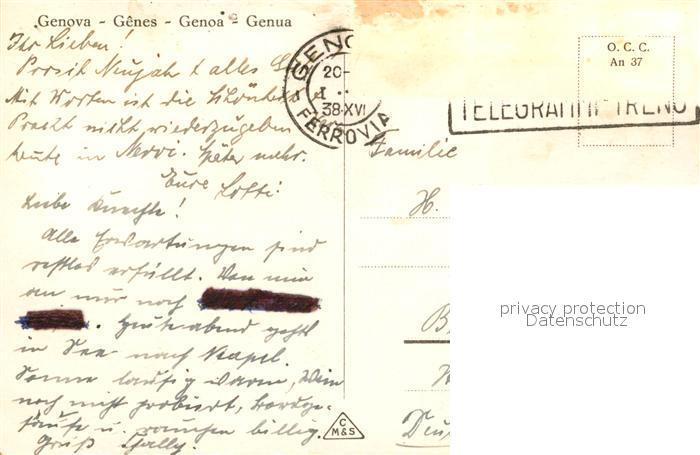 Genova - Gênes - Genoa - Genua
Ihr Lieben!
Prosit Neujahr & alles
Mit Worten ist die Schönheit &
Pracht nicht wiederzugeben
heute in Nervi. Später mehr.
Eure Lotti.
Liebe
Alle Erwartungen sind
restlos erfüllt. Von nun
an nur noch
. Heute abend geht's
in See nach Neapel.
Sonne läufig warm, Wein
noch nicht probiert,
u. rauchen billig.
Gruß
C
M&S
GENO
20-
I
38·XVI
FERROVIA
TELEGRAMMI-TRENO
O. C. C.
An 37
Familie
H.
B
Deu
privacy protection
Datenschutz